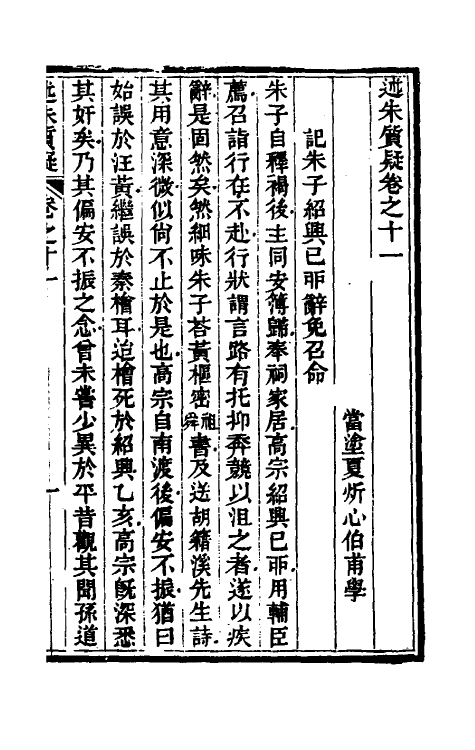 述朱質疑卷之十一
當塗夏炘心伯甫學
記朱子紹興己丣辭免召命
朱子自釋褐後主同安簿歸奉祠家居高宗紹興己丣用輔臣
薦召詣行在不赴行狀謂言路有托抑奔競以沮之者遂以疾
辭是固然矣然細味朱子荅黃樞密祖舜書及送胡籍溪先生詩
其用意深微似尙不止於是也高宗自南渡後偏安不振猶曰
始誤於汪黃繼誤於秦檜耳迨檜死於紹興乙亥高宗旣深悉
其奸矣乃其偏安不振之念曾未嘗少異於平昔觀其聞孫道
述朱質疑 卷之十一 一